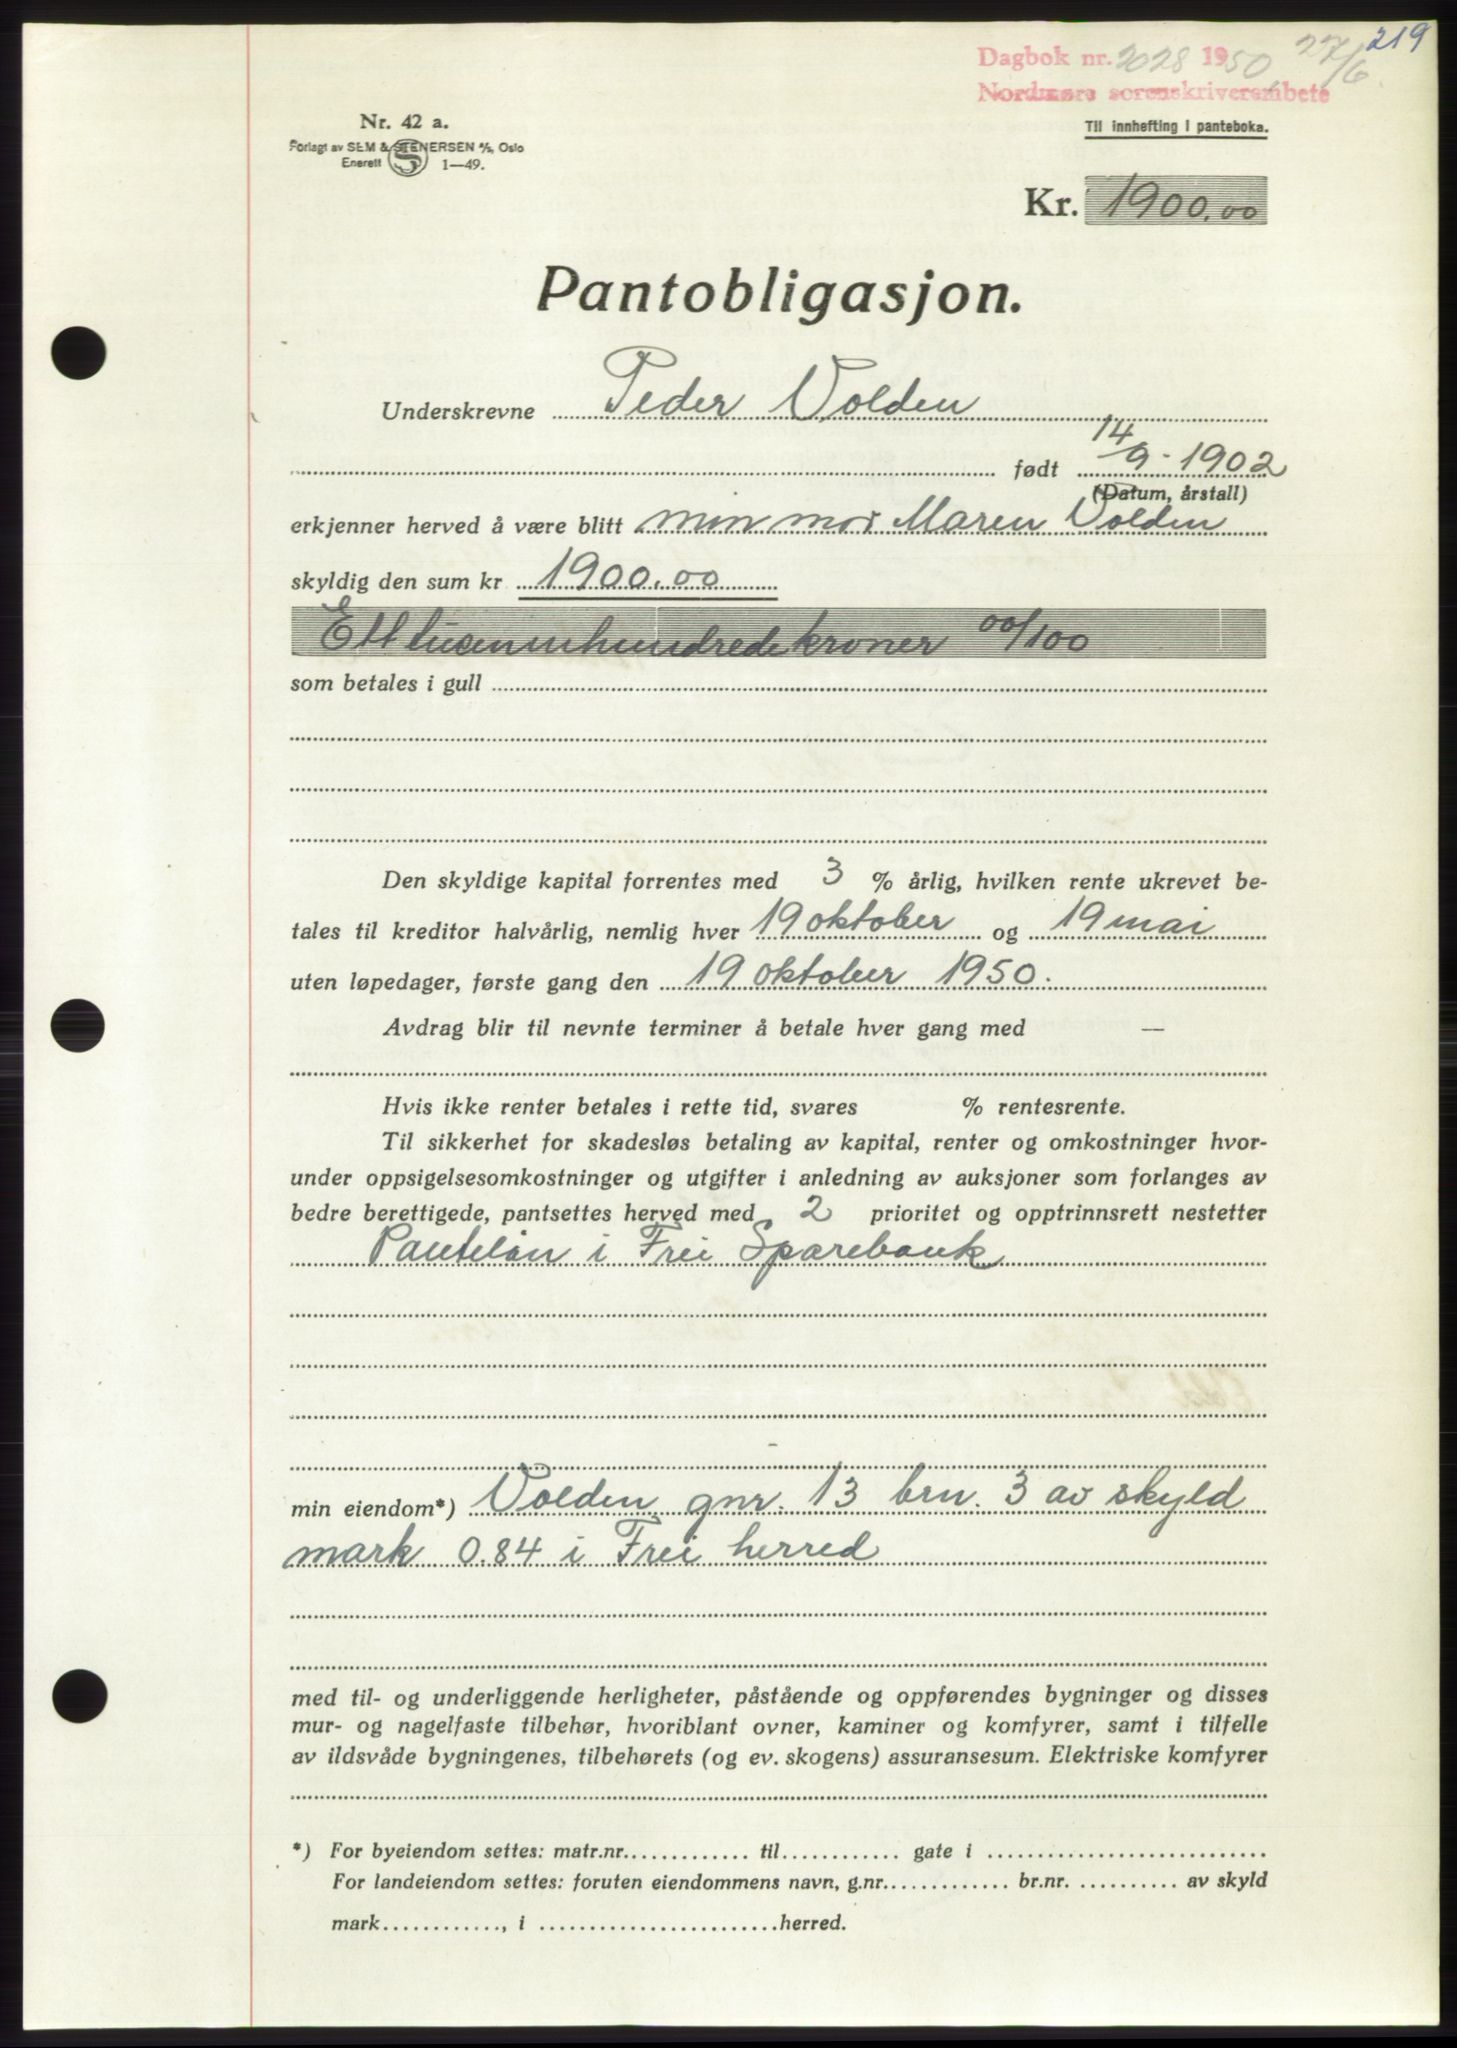 219
Dagbok nr. 2028 1950 27/6
Nordmøre sorenskriverembete
Til innhefting i panteboka.
Nr. 42 a.
Forlagt av SEM & STENERSEN A/S, Oslo
Enerett S 1—49.
Kr. 1900,00
Pantobligasjon.
Underskrevne Peder Volden
født 14/9-1902
(Datum, årstall)
erkjenner herved å være blitt min mor Maren Volden
skyldig den sum kr 1900,00
kroner 00/100
som betales i gull
Den skyldige kapital forrentes med 3 % årlig, hvilken rente ukrevet be-
tales til kreditor halvårlig, nemlig hver 19 oktober og 19 mai
uten løpedager, første gang den 19 oktober 1950.
Avdrag blir til nevnte terminer å betale hver gang med —
Hvis ikke renter betales i rette tid, svares % rentesrente.
Til sikkerhet for skadesløs betaling av kapital, renter og omkostninger hvor-
under oppsigelsesomkostninger og utgifter i anledning av auksjoner som forlanges av
bedre berettigede, pantsettes herved med 2 prioritet og opptrinnsrett nestetter
Pantelån i Frei Sparebank
min eiendom*) Volden gnr. 13 brn. 3 av skyld
mark 0.84 i Frei herred
med til- og underliggende herligheter, påstående og oppførendes bygninger og disses
mur- og nagelfaste tilbehør, hvoriblant ovner, kaminer og komfyrer, samt i tilfelle
av ildsvåde bygningenes, tilbehørets (og ev. skogens) assuransesum. Elektriske komfyrer
*) For byeiendom settes: matr.nr. til gate i
For landeiendom settes: foruten eiendommens navn, g.nr. br.nr. av skyld
mark , i herred.